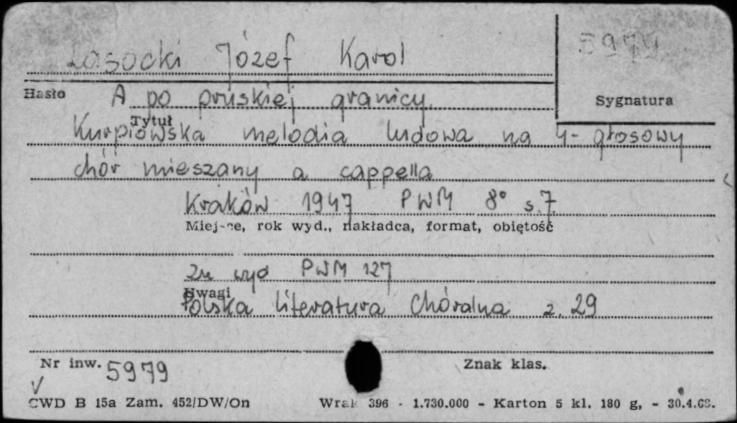 Lasocki Józef Karol
5979
Hasło
Sygnatura
A po pruskiej granicy.
Tytuł
Kurpiowska melodia ludowa na 4-głosowy
chór mieszany a cappella
Kraków 1947 PWM 8° s.7
Miejsce, rok wyd., nakładca, format, objętość
Zn wyd PWM 127
Uwagi
Polska literatura chóralna z. 29
Nr inw. 5979
Znak klas.
CWD B 15a Zam. 452/DW/On Wrak 396 - 1.730.000 - Karton 5 kl. 180 g, - 30.4.68.